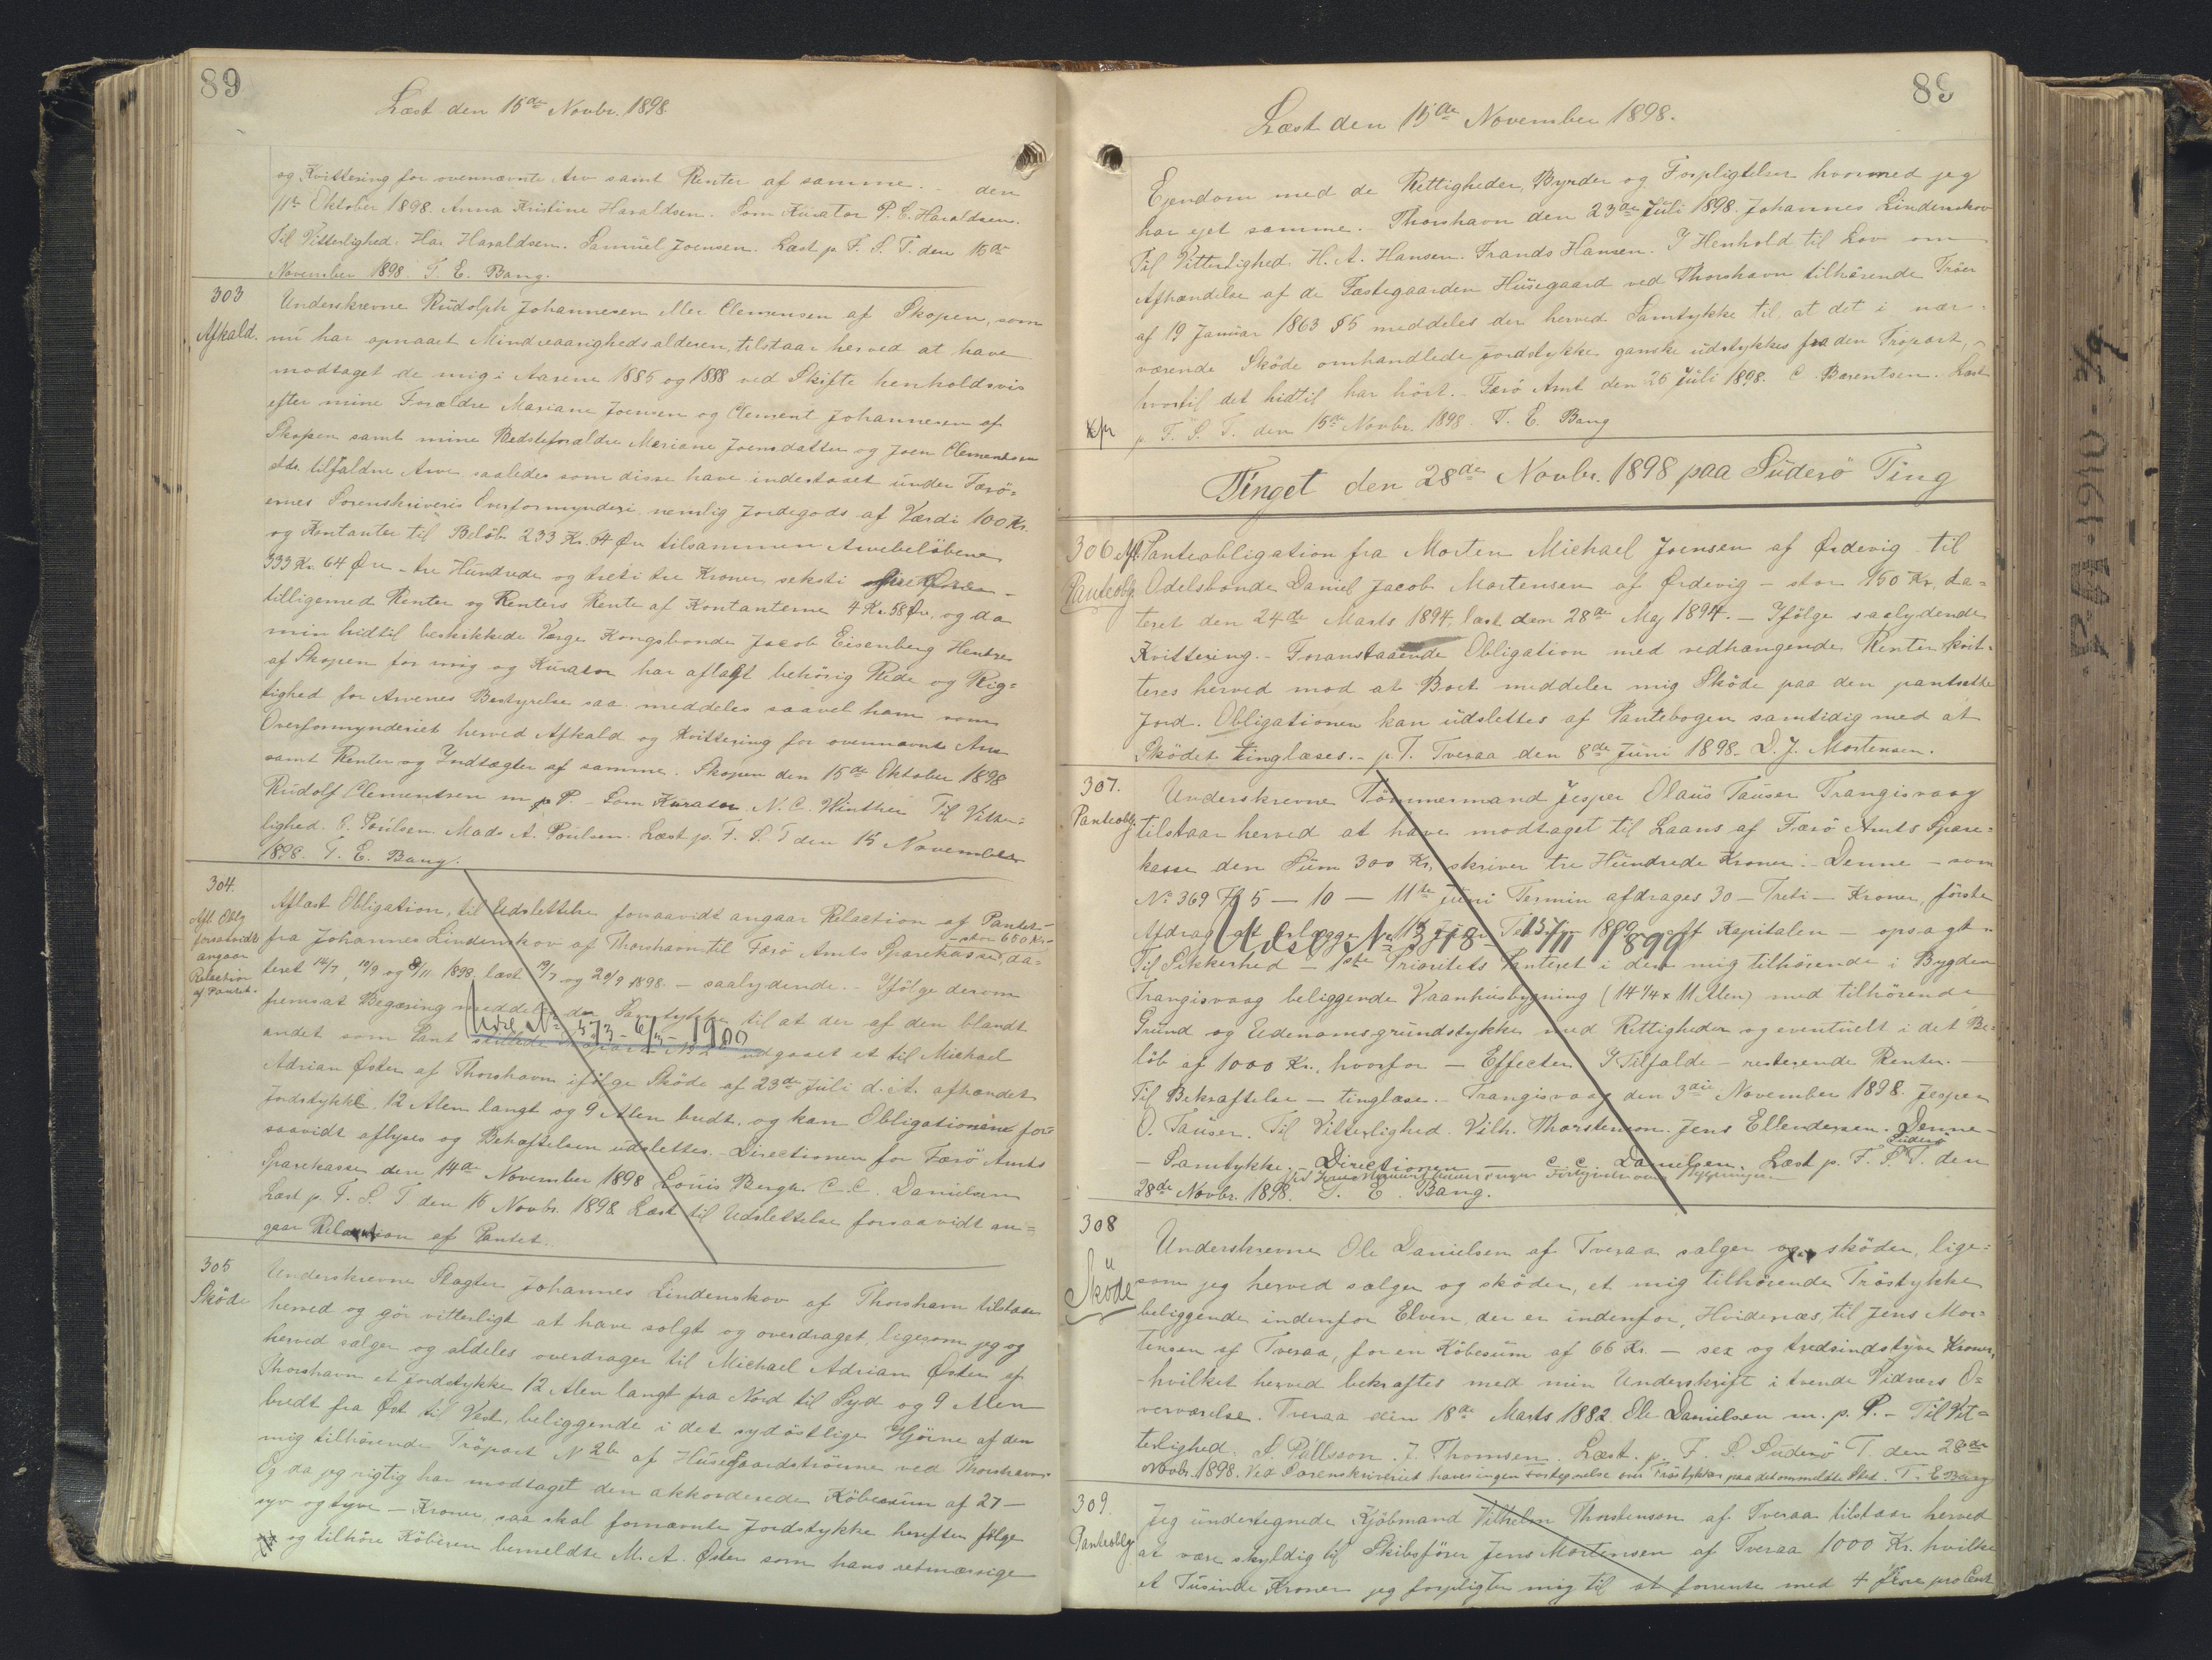 89
Læst den 15de Novbr. 1898.
og Kvittering for ovennævnte Arv samt Renter af samme. - den
11te Oktober 1898. Anna Kristine Haraldsen. Som Kurator P. E. Haraldsen.
Til Vitterlighed. Har Haraldsen. Samuel Joensen. Læst p. F. S. T. den 15de
November 1898. T. E. Bang.
303
Afkald.
Underskrevne Rudolph Johannesen eller Clemensen af Skopen, som
nu har opnaaet Mindreaarighedsalderen, tilstaar herved at have
modtaget de mig i Aarene 1885 og 1888 ved Skifte henholdsvis
efter mine Forældre Mariane Joensen og Clement Johannesen af
Skopen samt mine Bedsteforældre Mariane Joensdatter og Joen Clementsen
stds. tilfaldne Arve saaledes som disse have indestaaet under Færö-
ernes Sorenskriveris Overformynderi, nemlig Jordegods af Værdi 100 Kr.
og Kontanter til Belöb 233 Kr. 64 Øre tilsammen Arvebelöbene
333 Kr. 64 Øre - tre Hundrede og treti tre Kroner seksti fire Øre -
tilligemed Renter og Renters Rente af Kontanterne 4 Kr. 58 Øre, og da
min hidtil beskikkede Værge Kongsbonde Jacob Eisenberg Hentze
af Skopen for mig og Kurator har aflagt behörig Rede og Rig=
tighed for Arvenes Bestyrelse saa meddeles saavel ham som
Overformynderiet herved Afkald og Kvittering for ovennævnte Arv
samt Renter og Indtægter af samme. Skopen den 15de Oktober 1898
Rudolf Clementsen m. p. P. - Som Kurator N. C. Winther Til Vitter=
lighed. E. Poulsen. Mads A. Poulsen. Læst p. F. S. T den 15 November
1898. T. E. Bang.
304.
Afl. Oblg
forsaavidt
angaar
Relaction
af Pantet.
Aflæst Obligation, til Udslettelse forsaavidt angaar Relaction af Pantet -
- stor 650 Kr -
fra Johannes Lindenskov af Thorshavn til Færö Amts Sparekasse, da=
teret 14/7, 10/9 og 8/11 1898, læst 19/7 og 20/9 1898. - saalydende. - Ifölge derom
fremsat Begæring meddeles der Samtykke til at der af den blandt
Udsl. No 573 - 6/3 - 1900
andet som Pant udgaaet et til Michael
Adrian Østen af Thorshavn ifölge Sköde af 23de Juli d. A. afhændet
Jordstykke 12 Alen langt og 9 Alen bredt, og kan Obligationerne for=
saavidt aflyses og Behæftelsen udslettes. - Directionen for Færö Amts
Sparekasse den 14de November 1898 Louis Bergh. C. C. Danielsen
Læst p. F. S. T. den 15 Novbr. 1898. Læst til Udslettelse forsaavidt an=
gaar Relaction af Pantet.
305
Sköde
Underskrevne Slagter Johannes Lindenskov af Thorshavn tilstaar
herved og gör vitterligt at have solgt og overdraget, ligesom jeg og
herved sælger og aldeles overdrager til Michael Adrian Østen af
Thorshavn et Jordstykke 12 Alen langt fra Nord til Syd og 9 Alen
bredt fra Øst til Vest, beliggende i det sydöstlige Hjörne af den
mig tilhörende Tröpart No 2b af Husegaardströerne ved Thorshavn.
Og da jeg rigtig har modtaget den akkorderede Köbesum af 27 -
syv og tyve - Kroner, saa skal fornævnte Jordstykke herefter fölge
og tilhöre Köberen bemeldte M. A. Østen som hans retmæssige
89
Læst den 15de November 1898.
Ejendom med de Rettigheder, Byrder og Forpligtelser hvormed jeg
har ejet samme. - Thorshavn den 23de Juli 1898. Johannes Lindenskov
Til Vitterlighed. H. A. Hansen. Frands Hansen. I Henhold til Lov om
Afhændelse af de Fæstegaarden Husegaard ved Thorshavn tilhörende Tröer
af 19 Januar 1863 § 5 meddeles der herved Samtykke til, at det i nær=
værende Sköde omhandlede Jordstykke ganske udstykkes fra den Tröpart,
hvortil det hidtil har hört. - Færö Amt den 26 Juli 1898. C. Bærentsen. Læst
p. F. S. T. den 15de Novbr. 1898. T. E. Bang
Tinget den 28de Novbr. 1898 paa Suderö Ting
306 Afl.
Panteoblg.
Panteobligation fra Morten Michael Joensen af Ørdevig til
Odelsbonde Daniel Jacob Mortensen af Ørdevig - stor 150 Kr, da=
teret den 24de Marts 1894, læst den 28de Maj 1894. - Ifölge saalydende
Kvittering. - Foranstaaende Obligation med vedhængende Renter kvit=
teres herved mod at Boet meddeler mig Sköde paa den pantsatte
Jord. Obligationen kan udslettes af Pantebogen samtidig med at
Sködet tinglæses. - p. T. Tveraa den 8de Juni 1898. D. J. Mortensen.
307.
Panteoblg.
Underskrevne Tömmermand Jesper Olaus Tausen Trangisvaag
tilstaar herved at have modtaget til Laans af Færö Amts Spare=
kasse den Sum 300 Kr, skriver tre Hundrede Kroner. - Denne - som
No 369 5 - 10 - 11te Juni Termin afdrages 30 - Treti - Kroner, förste
Afdrag at erlægge Kapitalen - opsagt
Udsl. No 318 - 13/11 1899
Til Sikkerhed - 1ste Prioritets Panteret i den mig tilhörende i Bygden
Trangisvaag beliggende Vaanhusbygning (14 1/4 x 11 Alen) med tilhörende
Grund og Udenomsgrundstykke med Rettigheder og eventuelt i det Be=
löb af 1000 Kr., hvorfor - Effecter I Tilfælde - resterende Renter. -
Til Bekræftelse - tinglæse. - Trangisvaag den 3die November 1898. Jesper
O. Tausen. Til Vitterlighed. Vilh. Thorstensson. Jens Ellendersen. Denne -
- Samtykke. - Directionen - C. C. Danielsen. Læst p. F. S. Suderö T. den
28de Novbr. 1898. T. E. Bang.
308
Sköde
Underskrevne Ole Danielsen af Tveraa sælger og sköder, lige=
som jeg herved sælger og sköder, et mig tilhörende Tröstykke
beliggende indenfor Elven, der er indenfor, Hvidenæs, til Jens Mor=
tensen af Tveraa, for en Köbesum af 66 Kr. - sex og tredsindstyve Kroner,
- hvilket herved bekræftes med min Underskrift i tvende Vidners O=
verværelse. Tveraa den 18de Marts 1882. Ole Danielsen m. p. P. - Til Vit=
terlighed. S. Pállsson. J. Thomsen. Læst. p. F. S. Suderö T. den 28de
Novbr. 1898. Ved Sorenskriveriet haves ingen Fortegnelse over Tröstykker paa det ommeldte Sted. T. E. Bang
309.
Panteoblg
Jeg undertegnede Kjöbmand Vilhelm Thorstensson af Tveraa tilstaar herved
at være skyldig til Skibsförer Jens Mortensen af Tveraa 1000 Kr. hvilke
et Tusinde Kroner jeg forpligter mig til at forrente med 4 fire pro Cent